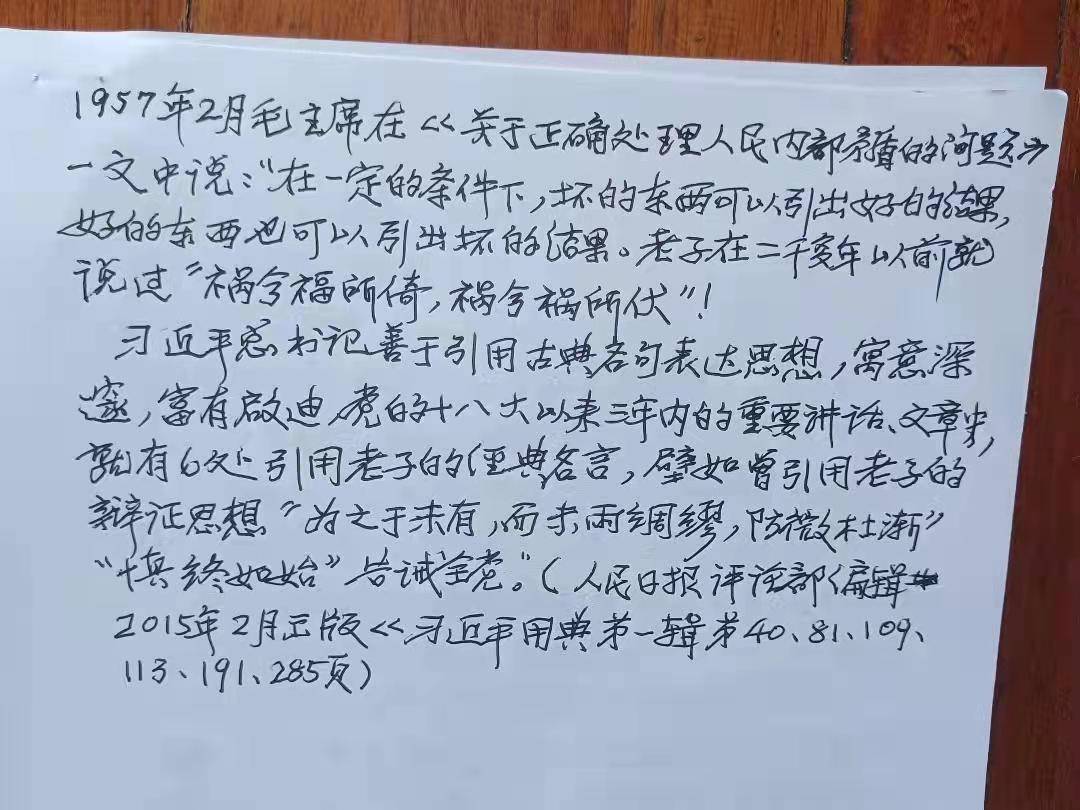 1957年2月毛主席在《关于正确处理人民内部矛盾的问题》
一文中说：“在一定的条件下，坏的东西可以引出好的结果，
好的东西也可以引出坏的结果。老子在二千多年以前就
说过“祸兮福所倚，祸兮祸所伏”！
习近平总书记善于引用古典名句表达思想，寓意深
邃，富有启迪，党的十八大以来三年内的重要讲话、文章中，
就有6处引用老子的经典名言，譬如曾引用老子的
辩证思想“为之于未有，而未雨绸缪，防微杜渐”
“慎终如始”告诫全党。”（人民日报评论部编辑
2015年2月正版《习近平用典第一辑第40、81、109、
113、191、285页）